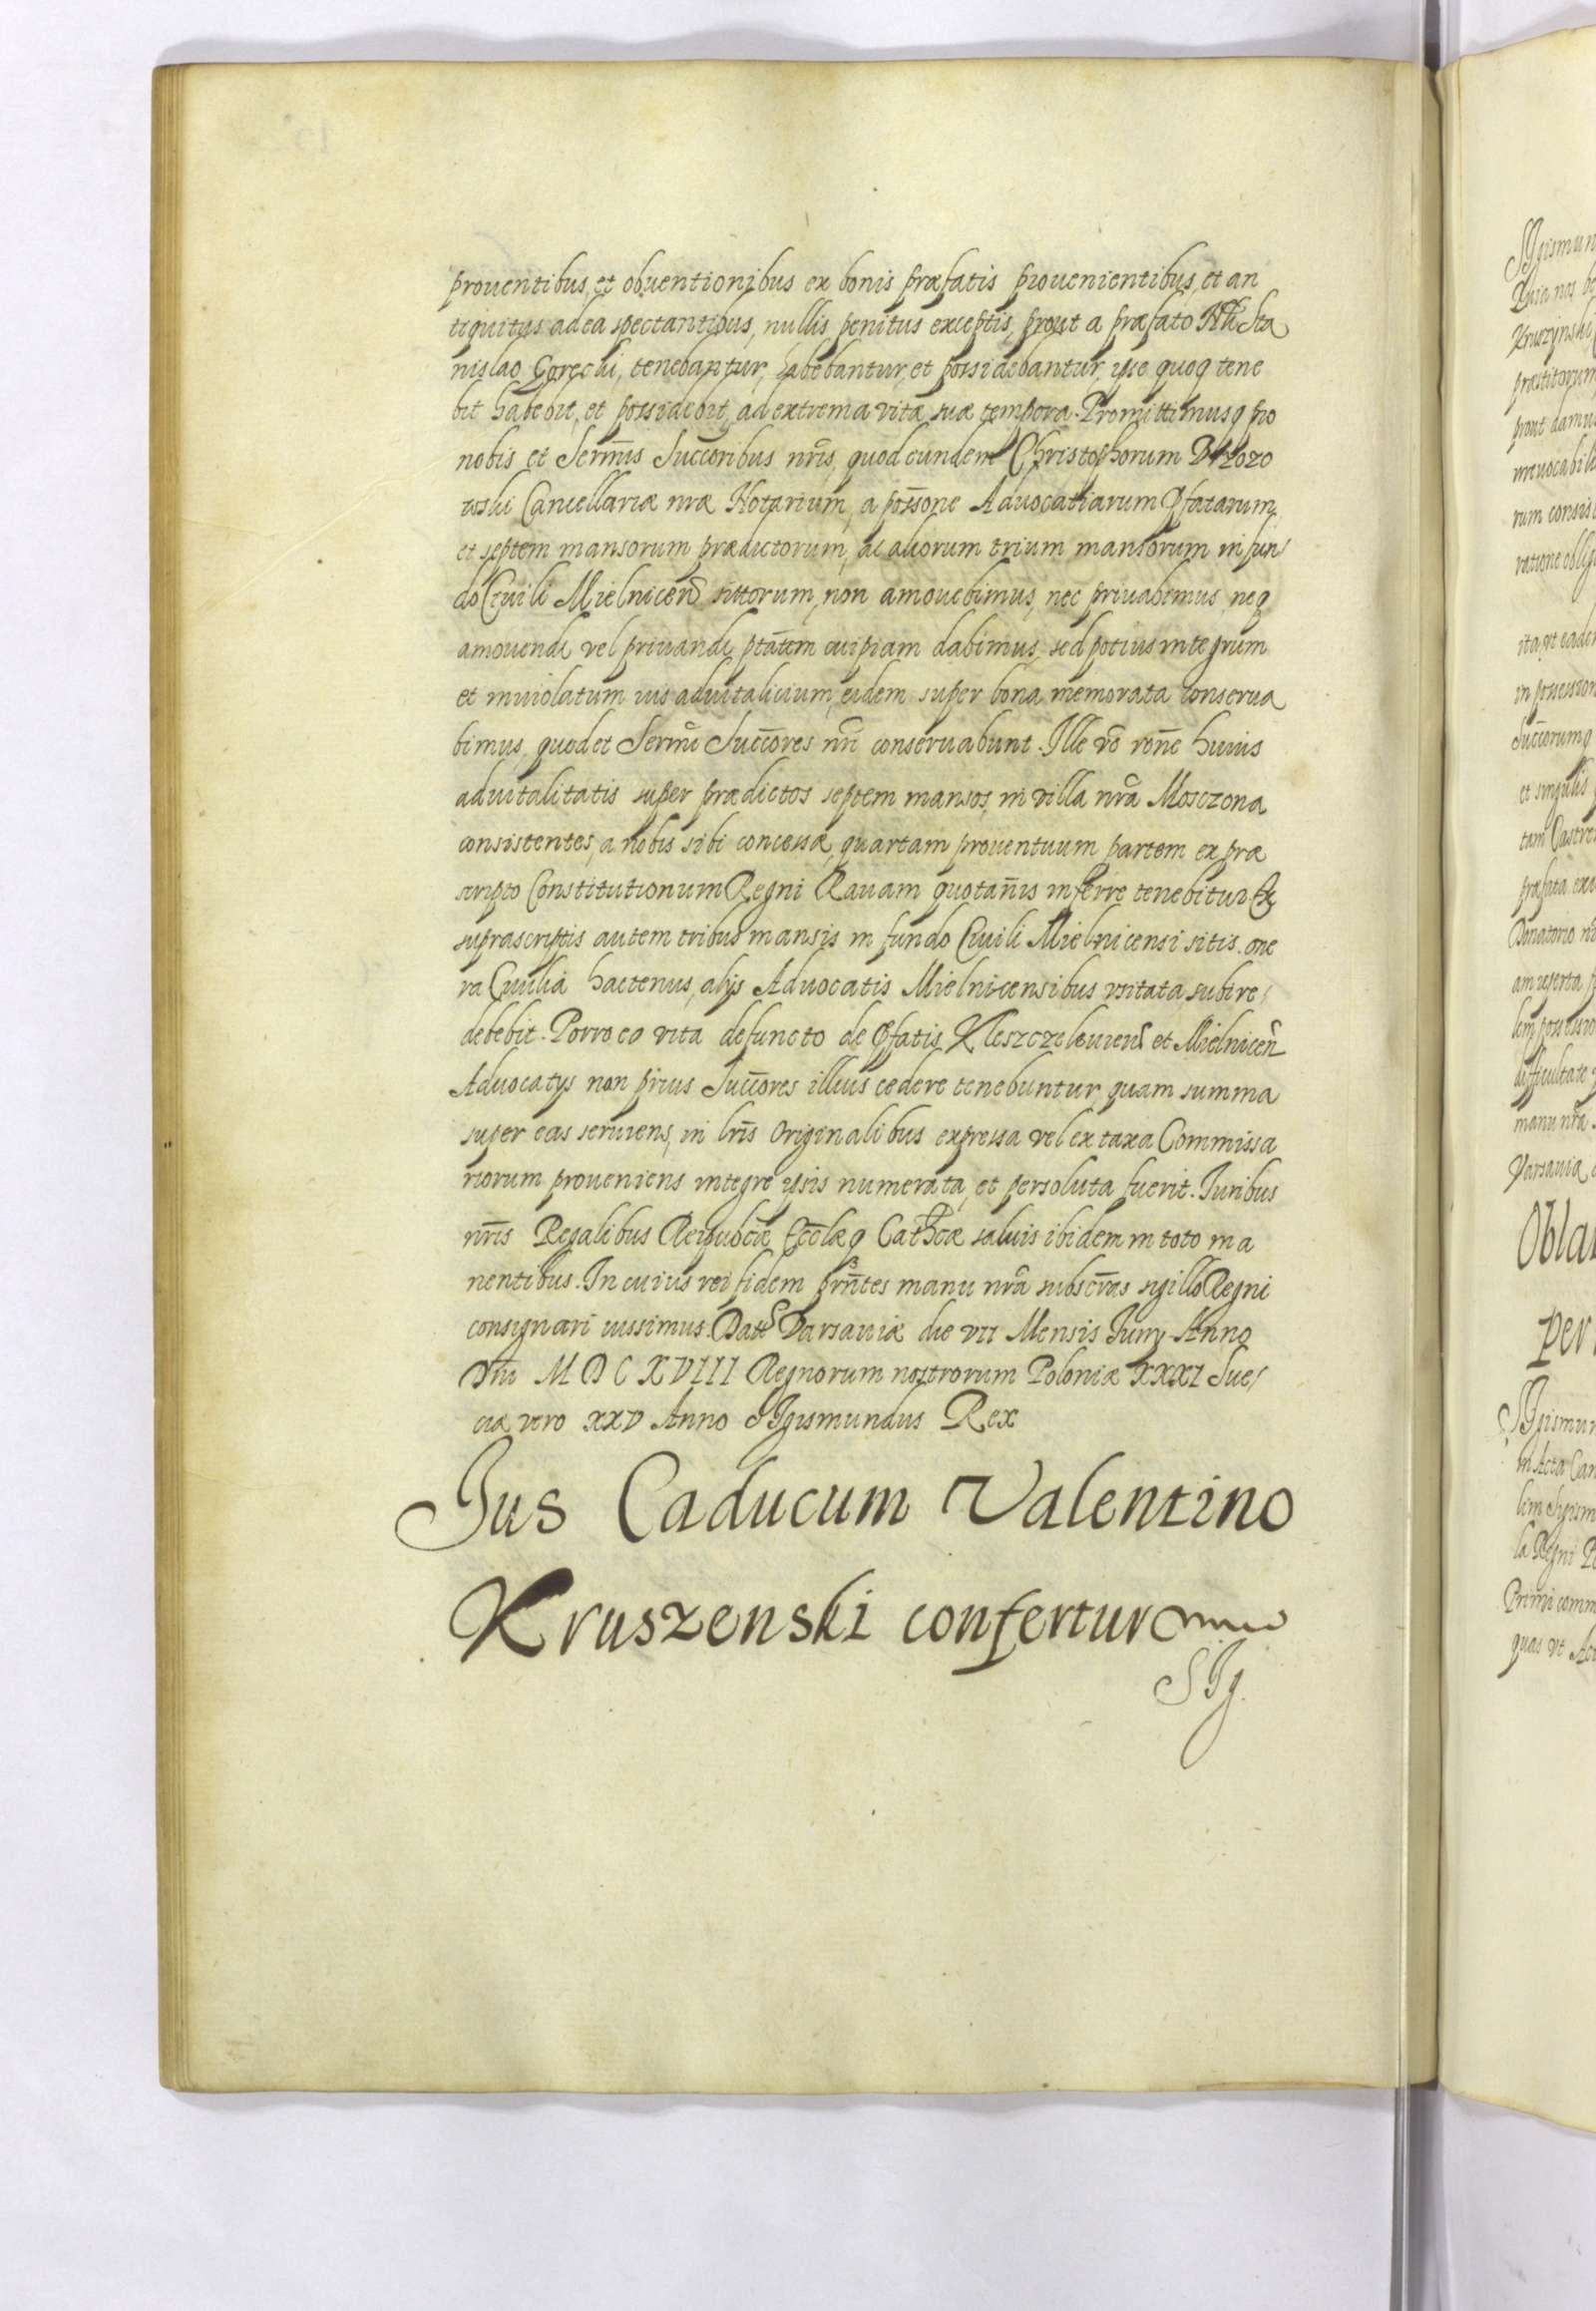 prouentibus, et obuentionibus ex bonis præfatis prouenientibus, et an
tiquitus ad ea spectantibus, nullis penitus exceptis, prout a præfato Sta
nislao Gorecki, tenebantur, habebantur, et possidebantur, ipse quoq tene
bit habebit, et possidebit, ad extrema vitæ suæ tempora. Promittimusq pro
nobis et Serm̄is Succoribus nr̄is, quod eundem Christophorum Brzozo
wski Cancellariæ nræ Notarium, a poss̄one Advocatiarum Pfatarum,
et septem mansorum prædictorum, ac aliorum trium mansorum in fun
do Ciuili Mielnicen̄ sittorum, non amouebimus, nec priuabimus, neq
amouendi vel priuandi ptātem cuipiam dabimus, sed potius integrum
et inuiolatum ius aduitalicium, eidem super bona memorata conserua
bimus, quod et Serm̄i Succ̄ores nr̄i conseruabunt. Ille vō ron̄e huius
aduitalitatis super prædictos septem mansos, in villa nr̄a Mosczona
consistentes, a nobis sibi concessæ, quartam prouentuum partem ex præ
scripto Constitutionum Regni Rauam quotan̄is inferre tenebitur Ex
suprascriptis autem tribus mansis in fundo Ciuili Mielnicensi sitis. one
ra Ciuilia hactenus, alijs Advocatis Mielnicensibus vsitata, subire
debebit. Porro eo vita defuncto de Pfatis Kleszczelouien̄ et Mielnicen̄
Advocatijs non prius Succ̄ores illius cedere tenebuntur, quam summa
super eas seruiens, in lr̄is Originalibus expressa vel ex taxa Commissa
riorum proueniens integre ipsis numerata, et persoluta fuerit. Iuribus
nr̄is Regalibus Reipub̄cæ Ecc̄læq Cath̄cæ saluis ibidem in toto ma
nentibus. In cuius rei fidem prn̄tes manu nr̄a subscr̄as sigillo Regni
consignari iussimus. Dat̄ Varsauiæ die VII Mensis Iunij Anno
Dn̄i MDCXVIII Regnorum nostrorum Poloniæ XXXI Sue
ciæ vero XXV Anno SIgismundus Rex
Jus Caducum Valentino
Kruszenski confertur
SIg.